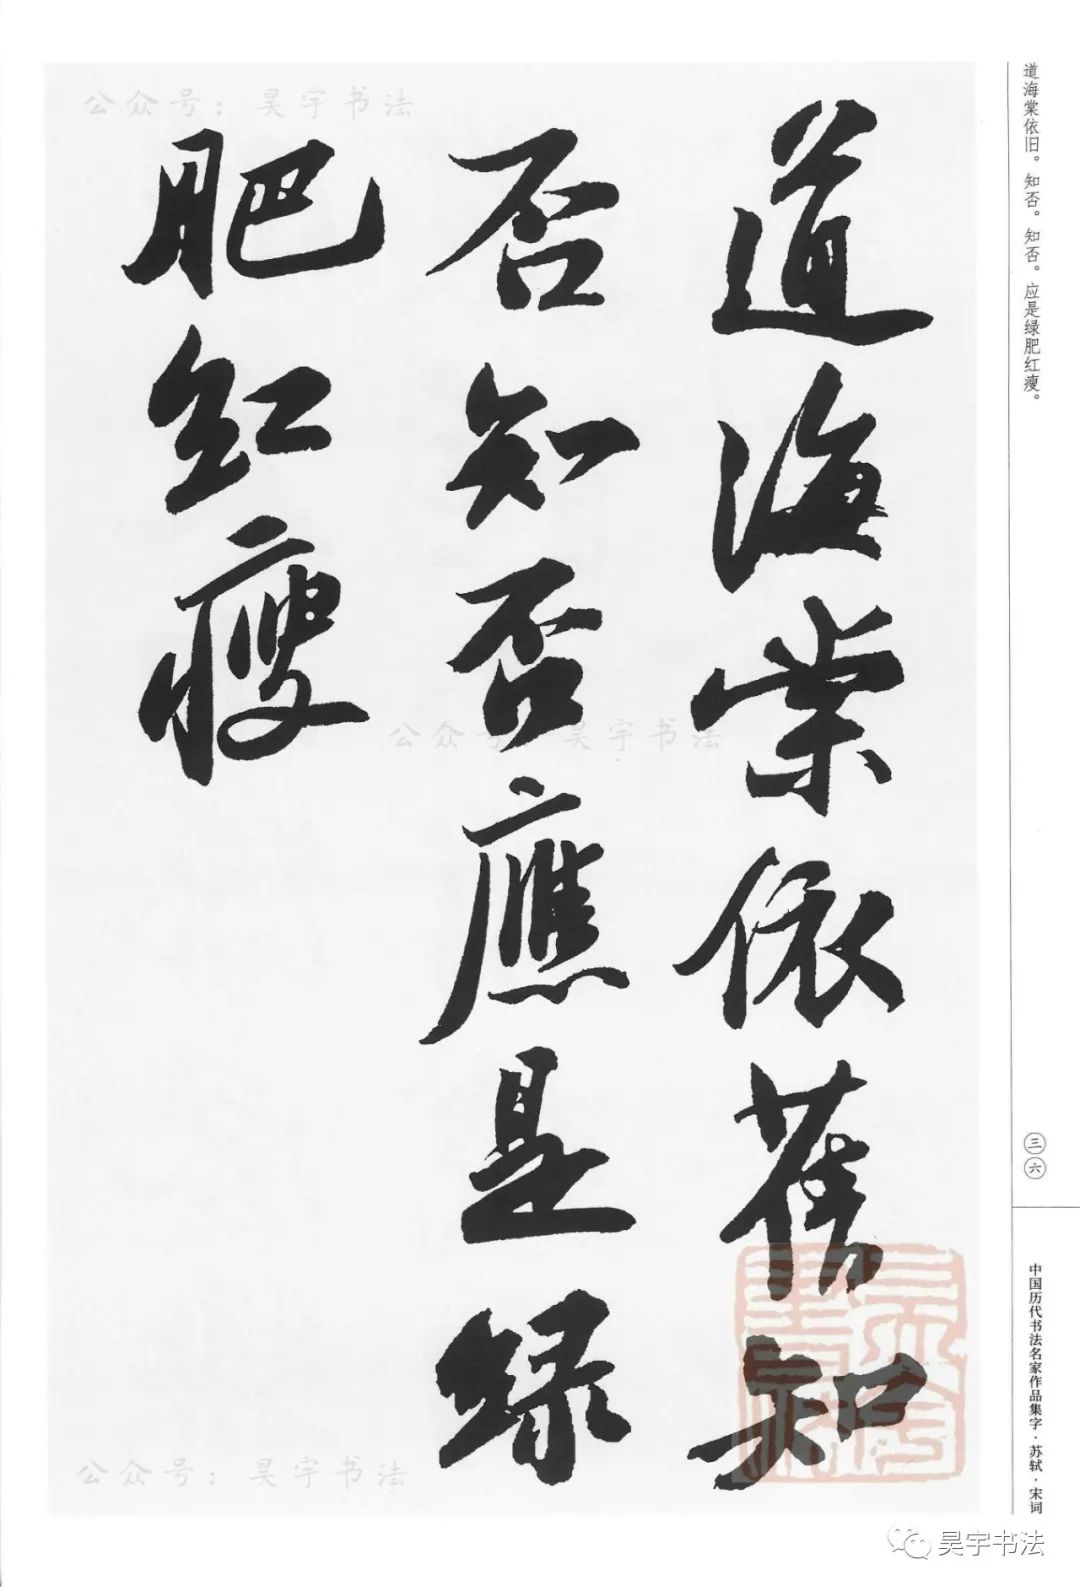 道海棠依旧。知否。知否。应是绿肥红瘦。
道海棠依舊知
否知否應是綠
肥红瘦
三六
中国历代书法名家作品集字·苏轼·宋词
公众号：昊宇书法
公众号：昊宇书法
公众号：昊宇书法
昊宇书法